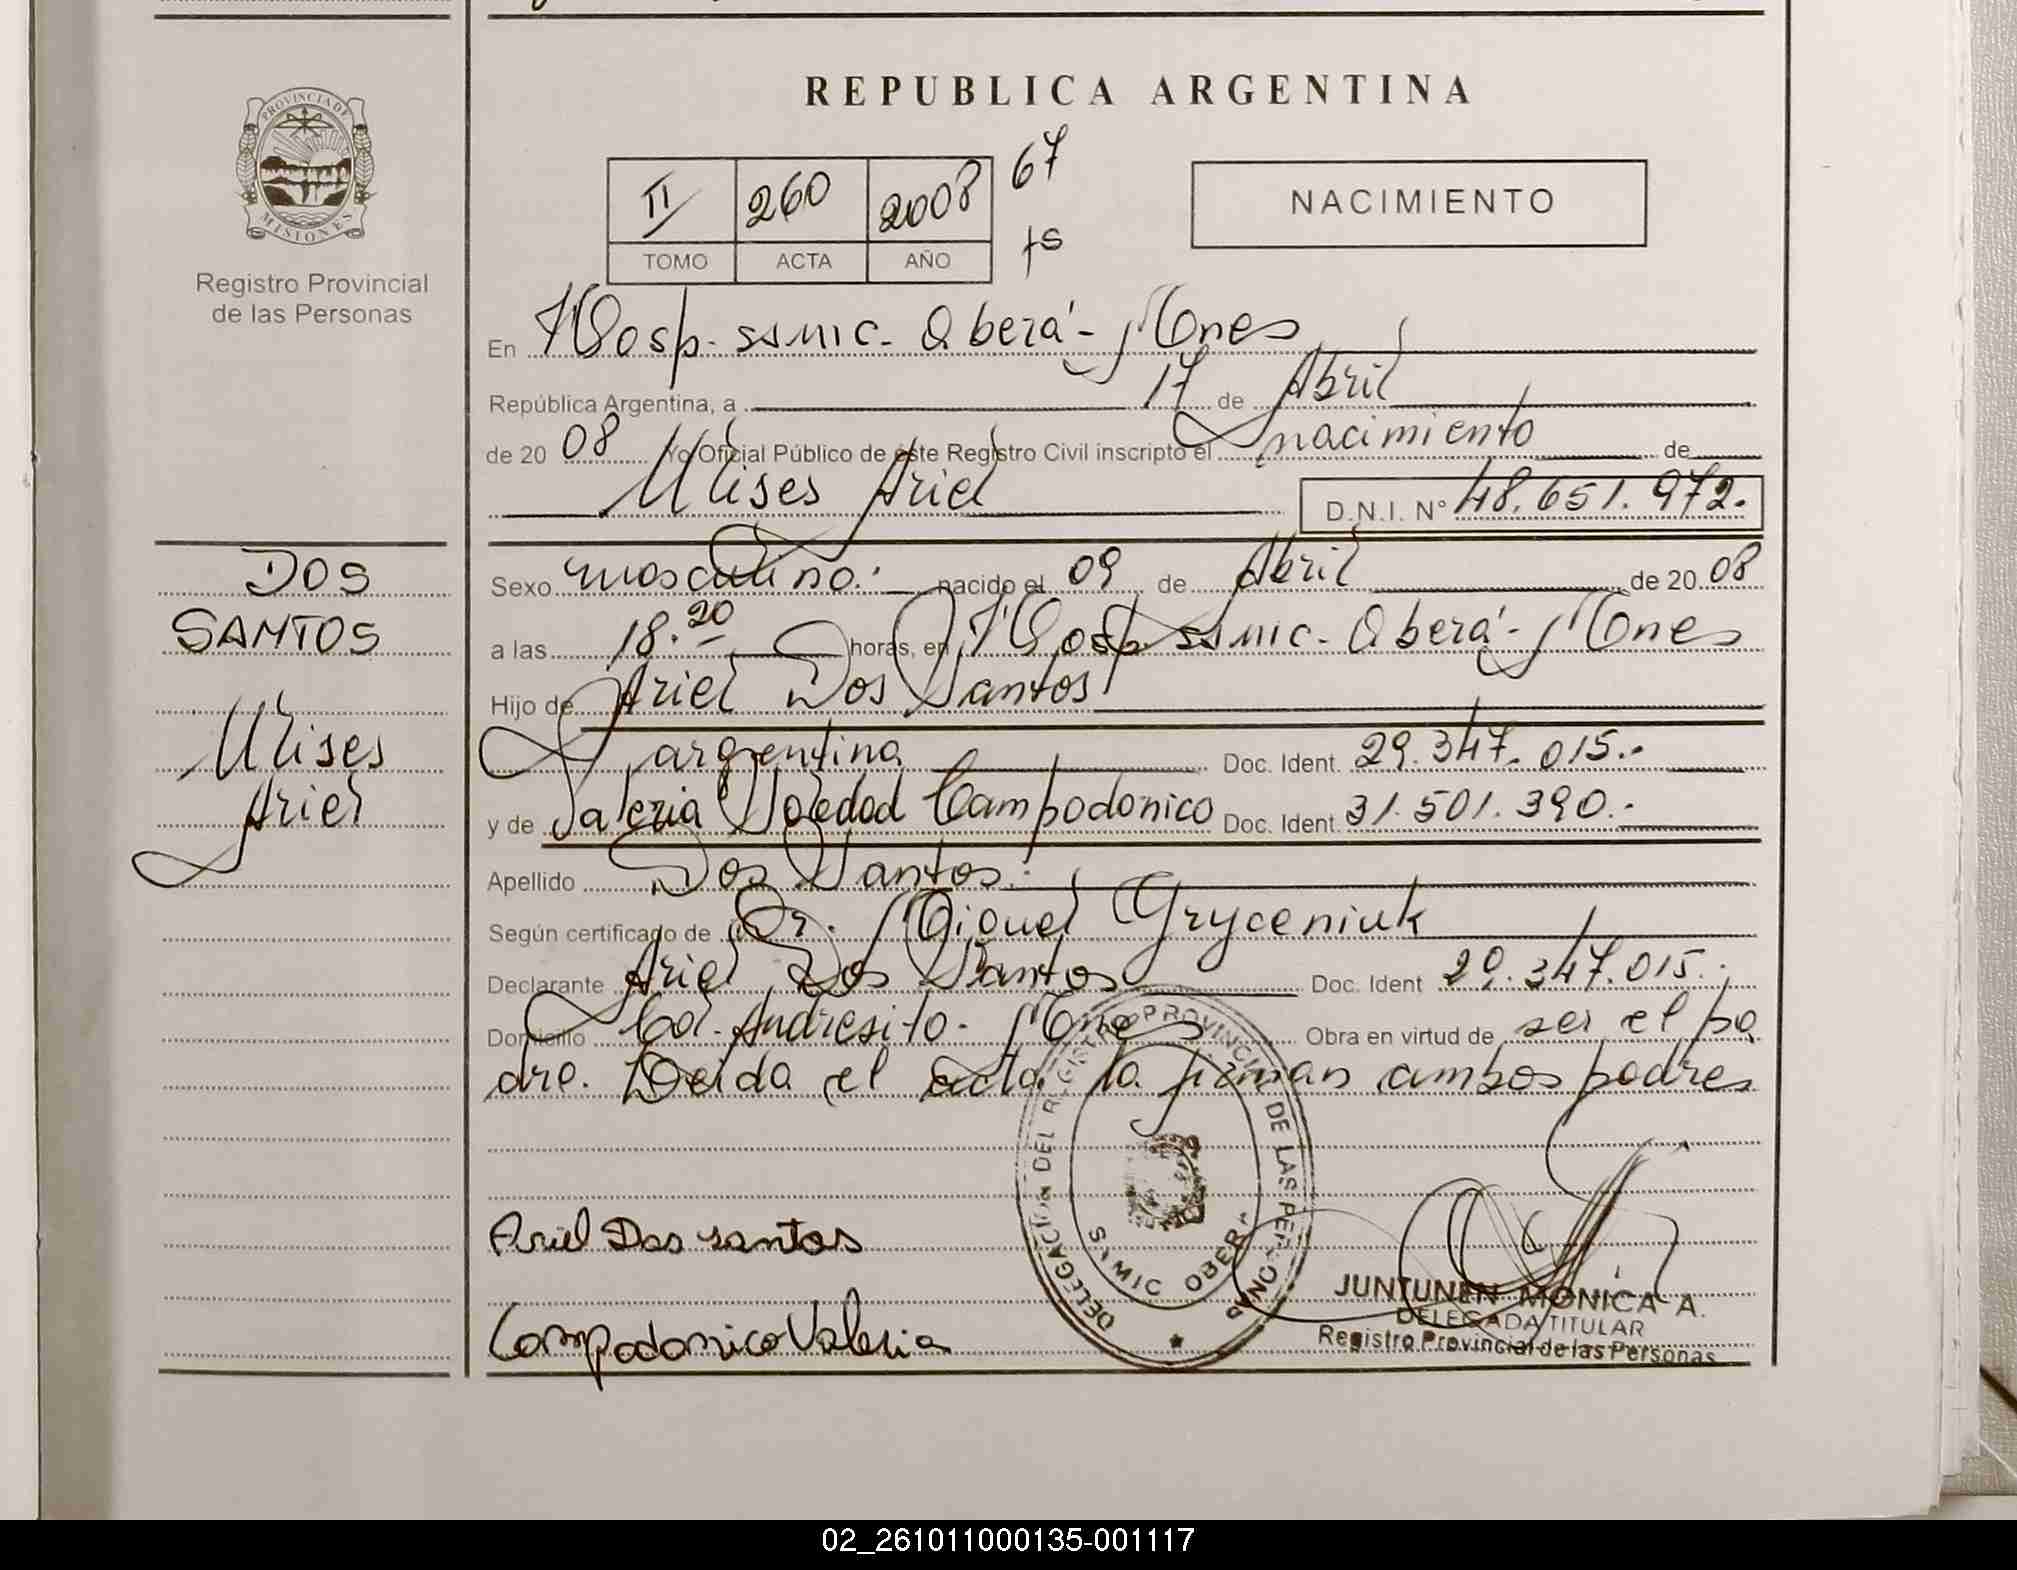 REPUBLICA ARGENTINA
PROVINCIA DE
MISIONES
Registro Provincial
de las Personas
II 260 2008 67
TOMO ACTA AÑO fs
NACIMIENTO
En Hosp. ssmic. Oberá - Mones
República Argentina, a 17 de Abril
de 20 08 Yo Oficial Público de éste Registro Civil inscripto el nacimiento de
Ulises Ariel D.N.I. N° 48.651.972.
DOS
SANTOS
Ulises
Ariel
Sexo masculino. nacido el 09 de Abril de 20 08
a las 18.20 horas, en Hosp. ssmic. Oberá - Mones
Hijo de Ariel Dos Santos
argentina Doc. Ident. 29.347.015.-
y de Valeria Soledad Campodonico Doc. Ident. 31.501.390.-
Apellido Dos Santos.
Según certificado de Dr. Miguel Gryceniuk
Declarante Ariel Dos Santos Doc. Ident 29.347.015.-
Domicilio Col. Andresito - Mones Obra en virtud de ser el pa
dre. Leida el acta la firman ambos padres
DELEGACION DEL REGISTRO PROVINCIAL DE LAS PERSONAS
S.S.M.I.C OBERA
Ariel Dos santos
Campodonico Valeria
JUNTUNEN MONICA A.
DELEGADA TITULAR
Registro Provincial de las Personas
02_261011000135-001117